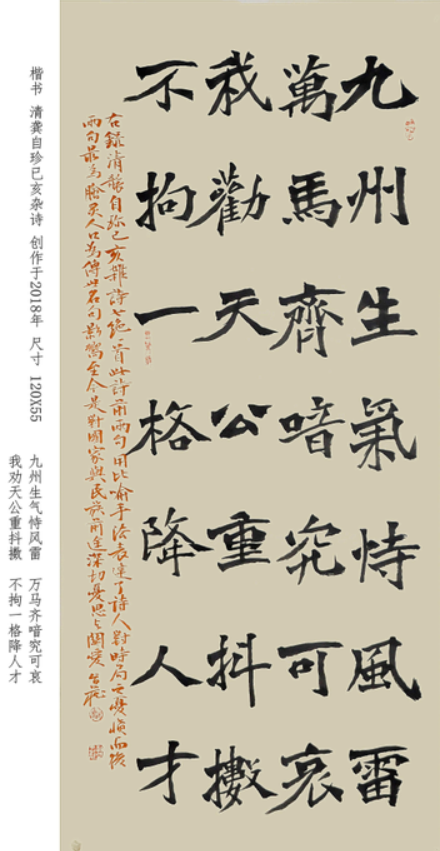 九州生氣恃風雷
萬馬齊喑究可哀
我勸天公重抖擻
不拘一格降人才
右錄清龔自珍己亥雜詩七絕一首此詩前兩句用比喻手法表達了詩人對時局之憂憤而後
兩句最為膾炙人口為傳世名句影響至今是對國家與民族前途深切憂思與關愛
楷书 清龚自珍己亥杂诗 创作于2018年 尺寸 120X55
九州生气恃风雷 万马齐喑究可哀
我劝天公重抖擞 不拘一格降人才